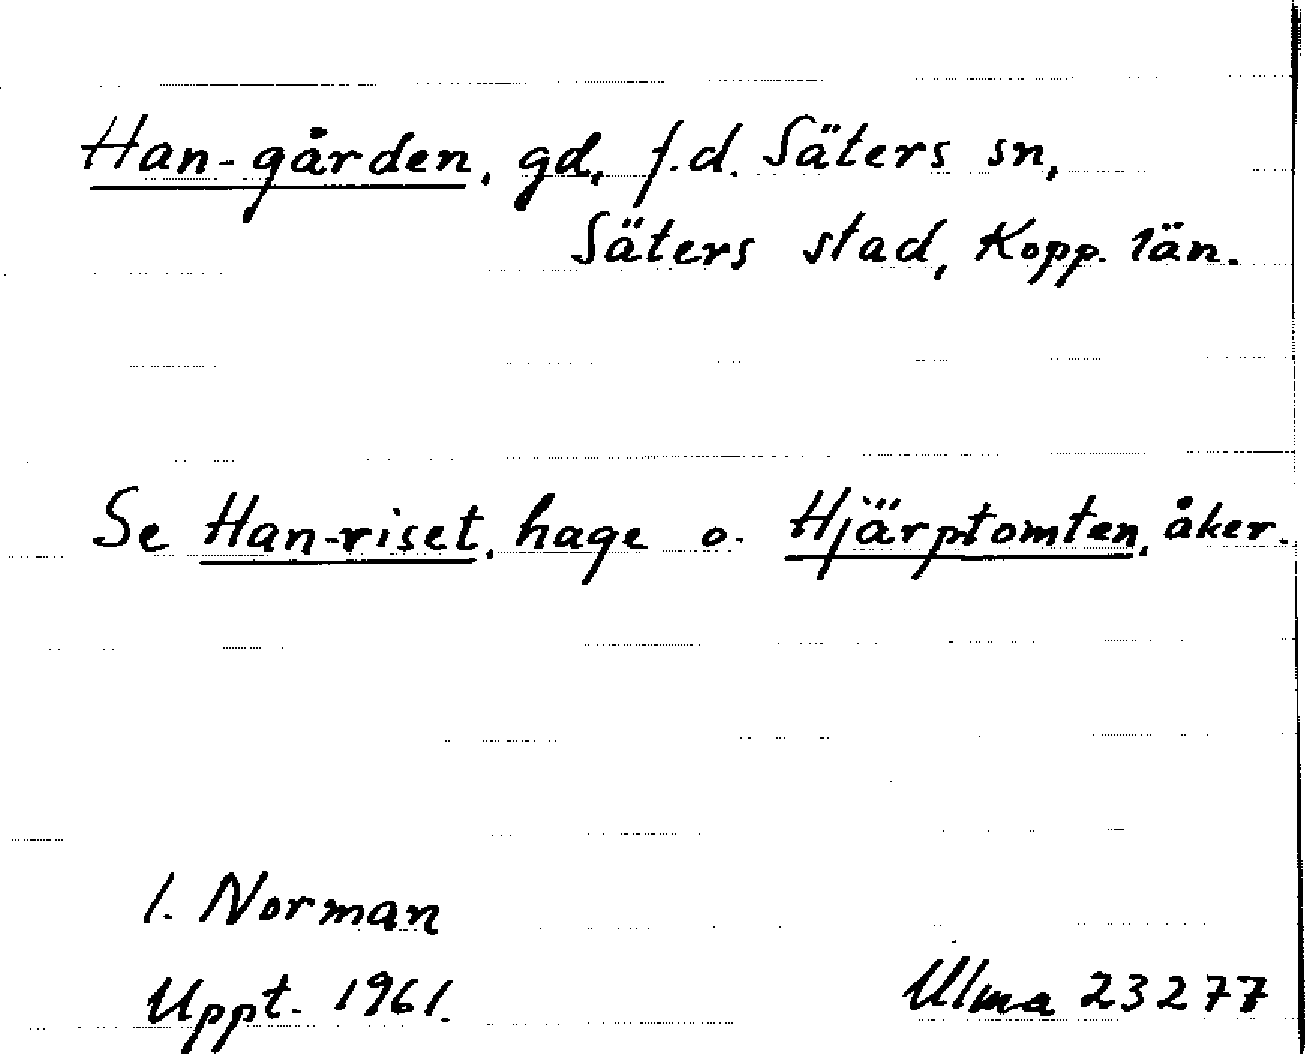 Han-gården, gd, f.d. Säters sn,
Säters stad, Kopp. län.
Se Han-riset, hage o. Hjärptomten, åker.
I. Norman
Uppt. 1961.
Ulma 23277